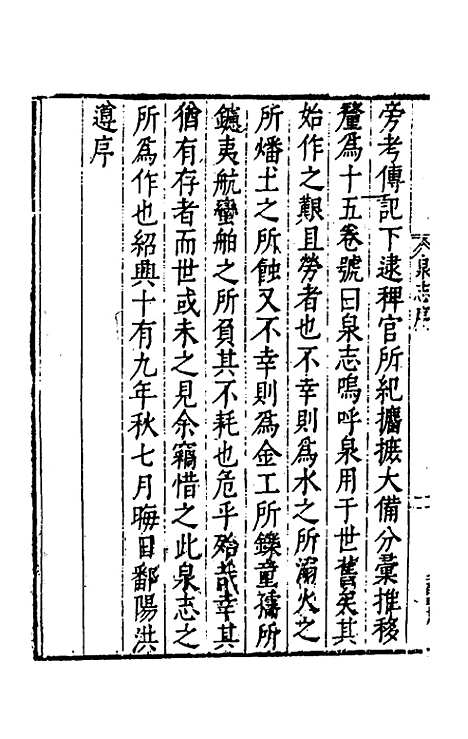 旁考傳記下逮稗官所紀攟摭大備分彙推移
釐爲十五卷號曰泉志嗚呼泉用于世舊矣其
始作之艱且勞者也不幸則爲水之所溺火之
所燔土之所蝕又不幸則爲金工所鑠童穉所
鑢夷航蠻舶之所負其不耗也危乎殆哉幸其
猶有存者而世或未之見余竊惜之此泉志之
所爲作也紹興十有九年秋七月晦日鄱陽洪
遵序
泉志序